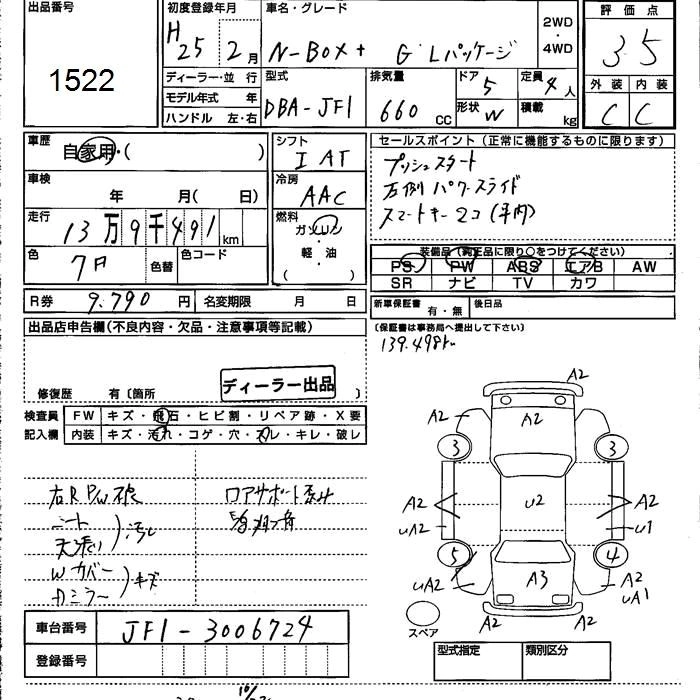 出品番号
1522
初度登録年月
H25 2月
車名・グレード
N-BOX + G・Lパッケージ
2WD
・
4WD
評価点
3.5
外装 内装
C C
ディーラー・並行
モデル年式 年
ハンドル 左・右
型式
DBA-JF1
排気量
660 cc
ドア 5
形状 W
定員 4人
積載 kg
車歴
自家用・( )
車検
年 月( 日)
走行
13万9千491km
色
色替
色コード
シフト
I AT
冷房
AAC
燃料
ガソリン
・
軽・油
( )
セールスポイント(正常に機能するものに限ります)
プッシュスタート
左側パワースライド
スマートキー2コ(車内)
装備品(純正品に限り○をつけてください)
PS PW ABS エアB AW
SR ナビ TV カワ
R券 9,790円 名変期限 月 日
新車保証書 有・無 後日品
(保証書は事務局へ提出して下さい)
139,498k
出品店申告欄(不良内容・欠品・注意事項等記載)
修復歴 有〔箇所 〕
ディーラー出品
検査員 FW キズ・飛石・ヒビ割・リペア跡・X要
記入欄 内装 キズ・汚れ・コゲ・穴・スレ・キレ・破レ
右R PW不良
シート
天張り
汚れ
Wカバー
Dミラー
キズ
ロアサポート歪み
A2
A2 A2 A2
3 3
A2 U2 A2
UA2 U1
5 4
UA2 A3 A2
UA1
A2 A2
スペア
車台番号 JF1-3006724
登録番号
型式指定 類別区分